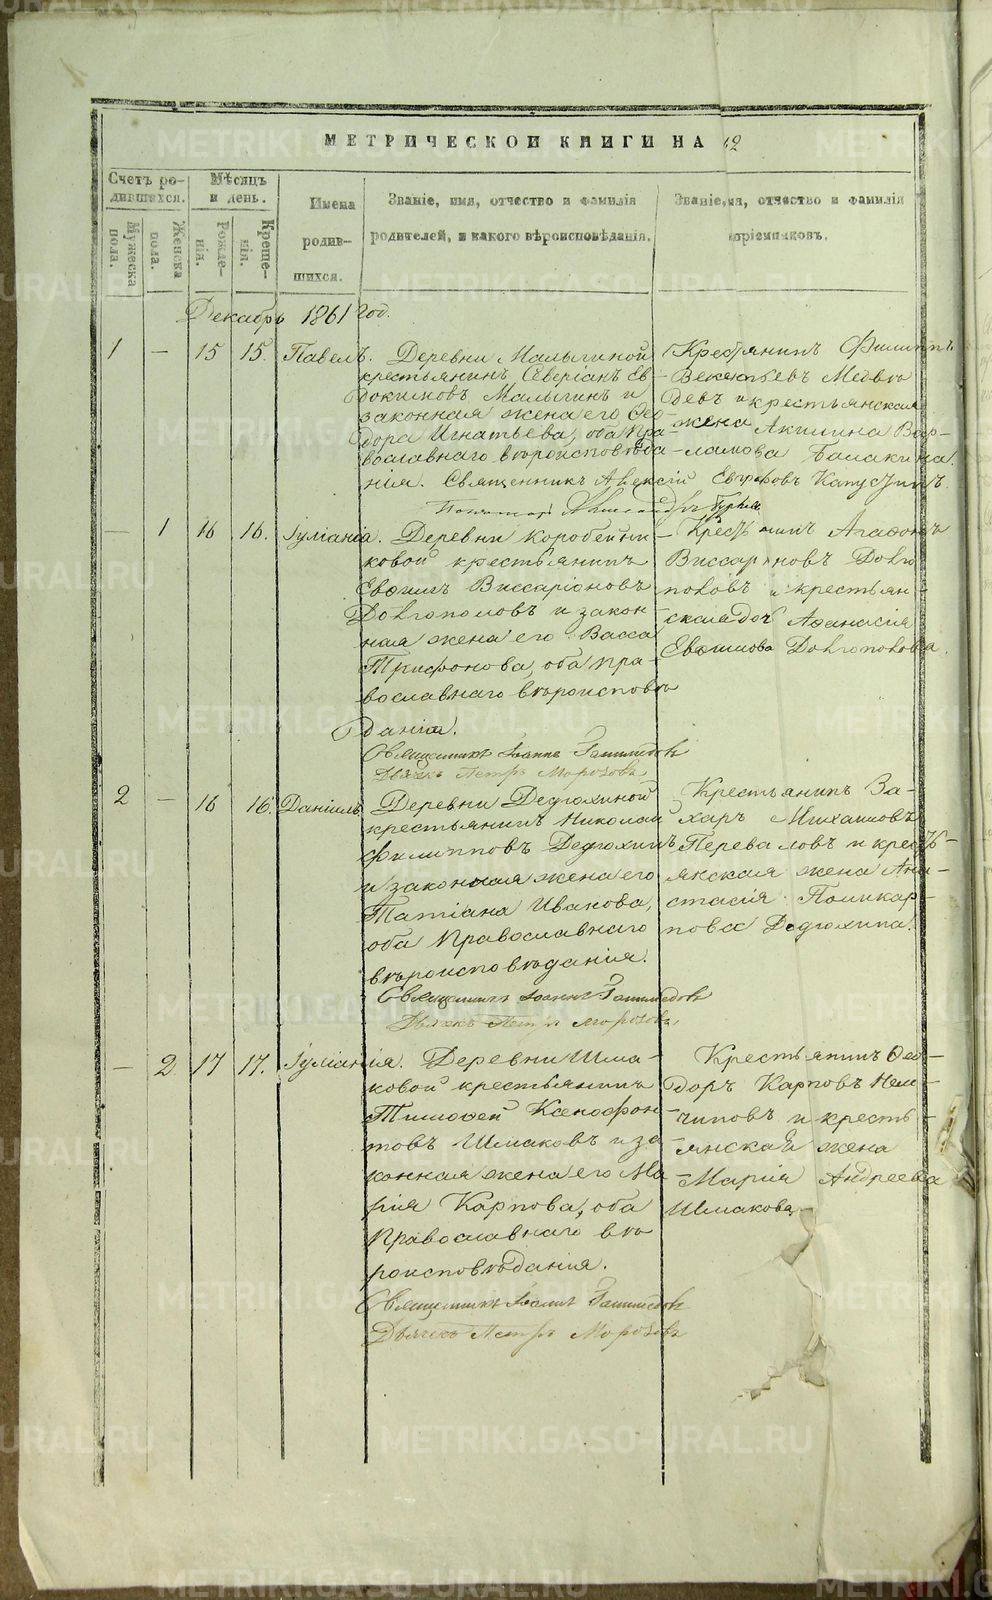 МЕТРИЧЕСКОЙ КНИГИ НА
Счетъ ро-
дившихся.
Мѣсяцъ
и день.
Имена
родив-
шихся.
Званіе, имя, отчество и фамилія
родителей, и какого вѣроисповѣданія.
Званіе, имя, отчество и фамилія
воспріемниковъ.
Мужеска
пола.
Женска
пола.
Рожде-
нія.
Креще-
нія.
Декабрь 1861 год.
1 — 15 15. Павелъ.
Деревни Малыгиной
крестьянинъ Северіанъ Ев-
докимовъ Малыгинъ и
законная жена его Ѳео-
дора Игнатьева, оба пра-
вославнаго вѣроисповѣда-
нія. Священникъ Алексій Капустинъ
Крестьянинъ Филиппъ
Медвѣ
девъ и крестьянская
жена Акилина Вар-
ламова Балакина.
— 1 16 16. Іуліанія.
Деревни Коробейни-
ковой крестьянинъ
Евѳимъ Виссаріоновъ
Долгополовъ и закон-
ная жена его Васса
Трифонова, оба пра-
вославнаго вѣроисповѣ
данія.
Священникъ Іоаннъ
Дьячекъ Петръ Морозовъ
Крестьянинъ Агафонъ
Виссаріоновъ Долго
половъ и крестьян-
ская дочь Аѳанасія
Евѳимова Долгополова.
2 — 16 16. Даніилъ
Деревни Дедюхиной
крестьянинъ Николай
Филипповъ Дедюхинъ
и законная жена его
Татіана Иванова,
оба Православнаго
вѣроисповѣданія.
Священникъ Іоаннъ
Дьячекъ Петръ Морозовъ
Крестьянинъ За-
харъ Михаиловъ
Переваловъ и кресть-
янская жена Ана-
стасія Поликар-
пова Дедюхина.
— 2 17 17. Іуліанія.
Деревни Шма-
ковой крестьянинъ
Тимоѳей Ксенофон-
товъ Шмаковъ и за
конная жена его Ма
рія Карпова, оба
Православнаго вѣ
роисповѣданія.
Священникъ Іоаннъ
Дьячекъ Петръ Морозовъ
Крестьянинъ Ѳео-
доръ Карповъ Нем-
чиновъ и кресть-
янская жена
Марія Андреева
Шмакова.
METRIKI.GASO-URAL.RU